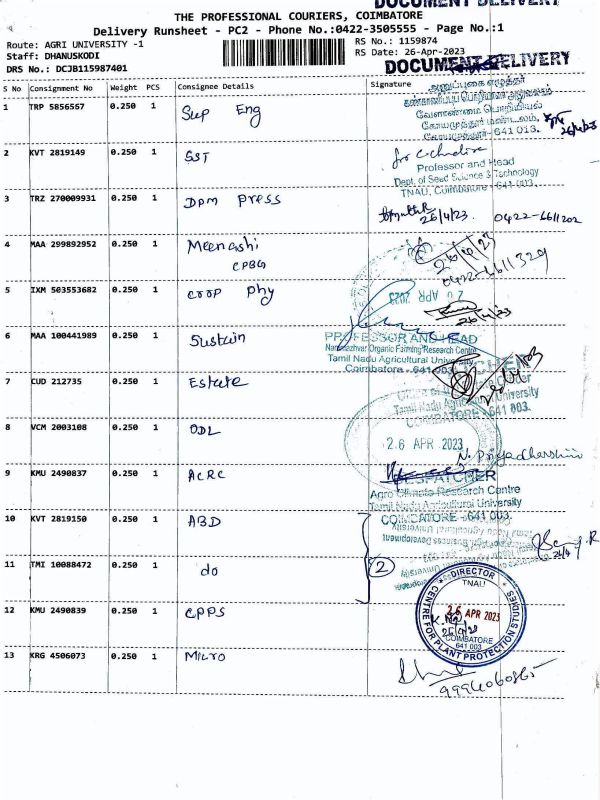 DOCUMENT DELIVERY
THE PROFESSIONAL COURIERS, COIMBATORE
Delivery Runsheet - PC2 - Phone No.:0422-3505555 - Page No.:1
Route: AGRI UNIVERSITY -1
RS No.: 1159874
Staff: DHANUSKODI
RS Date: 26-Apr-2023
DRS No.: DCJB115987401
DOCUMENT DELIVERY
S No Consignment No Weight PCS Consignee Details Signature
1 TRP 5856567 0.250 1 Sup Eng
641 013.
26/4/23
2 KVT 2819149 0.250 1 SST
Professor and Head
Dept. of Seed Science & Technology
TNAU, Coimbatore - 641 003.
3 TRZ 270009931 0.250 1 DPM PRESS
26/4/23. 0422-6611202
4 MAA 299892952 0.250 1 Meenashi
CPBG
26/4/23
0422-6611329
5 IXM 503553682 0.250 1 COOP Phy
26 APR 2023
26/4/23
6 MAA 100441989 0.250 1 Sustain
PROFESSOR AND HEAD
Nammazhvar Organic Farming Research Centre
Tamil Nadu Agricultural University
Coimbatore - 641 003.
7 CUD 212735 0.250 1 Estate
Tamil Nadu Agricultural University
COIMBATORE - 641 003.
8 VCM 2003108 0.250 1 ODL
26 APR 2023
N. Priyadharshini
9 KMU 2490837 0.250 1 ACRC
DESPATCHER
Agro Climate Research Centre
Tamil Nadu Agricultural University
COIMBATORE - 641 003.
10 KVT 2819150 0.250 1 ABD
11 TMI 10088472 0.250 1 do
2
12 KMU 2490839 0.250 1 CPPS
DIRECTOR
TNAU
26 APR 2023
COIMBATORE
641 003
CENTRE FOR PLANT PROTECTION STUDIES
13 KRG 4506073 0.250 1 MICRO
9994060865